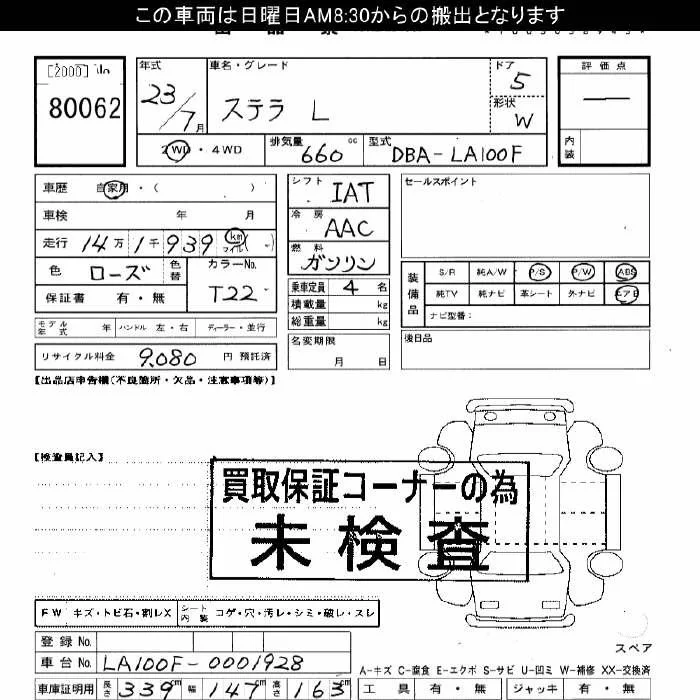 この車両は日曜日AM8:30からの搬出となります
[2000] No
80062
年式
23/7月
車名・グレード
ステラ L
ドア
5
形状
W
評価点
―
内装
2WD・4WD
排気量
660 cc
型式
DBA-LA100F
車歴 自家用・( )
車検 年 月
走行 14万1千939 km マイル( )
色 ローズ 色替
カラーNo.
T22
保証書 有・無
モデル年式 年 ハンドル 左・右 ディーラー・並行
リサイクル料金 9,080 円 預託済
シフト IAT
冷房 AAC
燃料 ガソリン
乗車定員 4 名
積載量 kg
総重量 kg
名変期限
月 日
セールスポイント
装備品
S/R 純A/W P/S P/W ABS
純TV 純ナビ 革シート 外ナビ エアB
ナビ型番:
後日品
【出品店申告欄(不良箇所・欠品・注意事項等)】
【検査員記入】
買取保証コーナーの為
未検査
FW キズ・トビ石・割レX シート内装 コゲ・穴・汚レ・シミ・破レ・スレ
スペア
登録No.
車台No. LA100F-0001928
車庫証明用 長さ 339cm 幅 147cm 高さ 163cm
A-キズ C-腐食 E-エクボ S-サビ U-凹ミ W-補修 XX-交換済
工具 有・無 ジャッキ 有・無